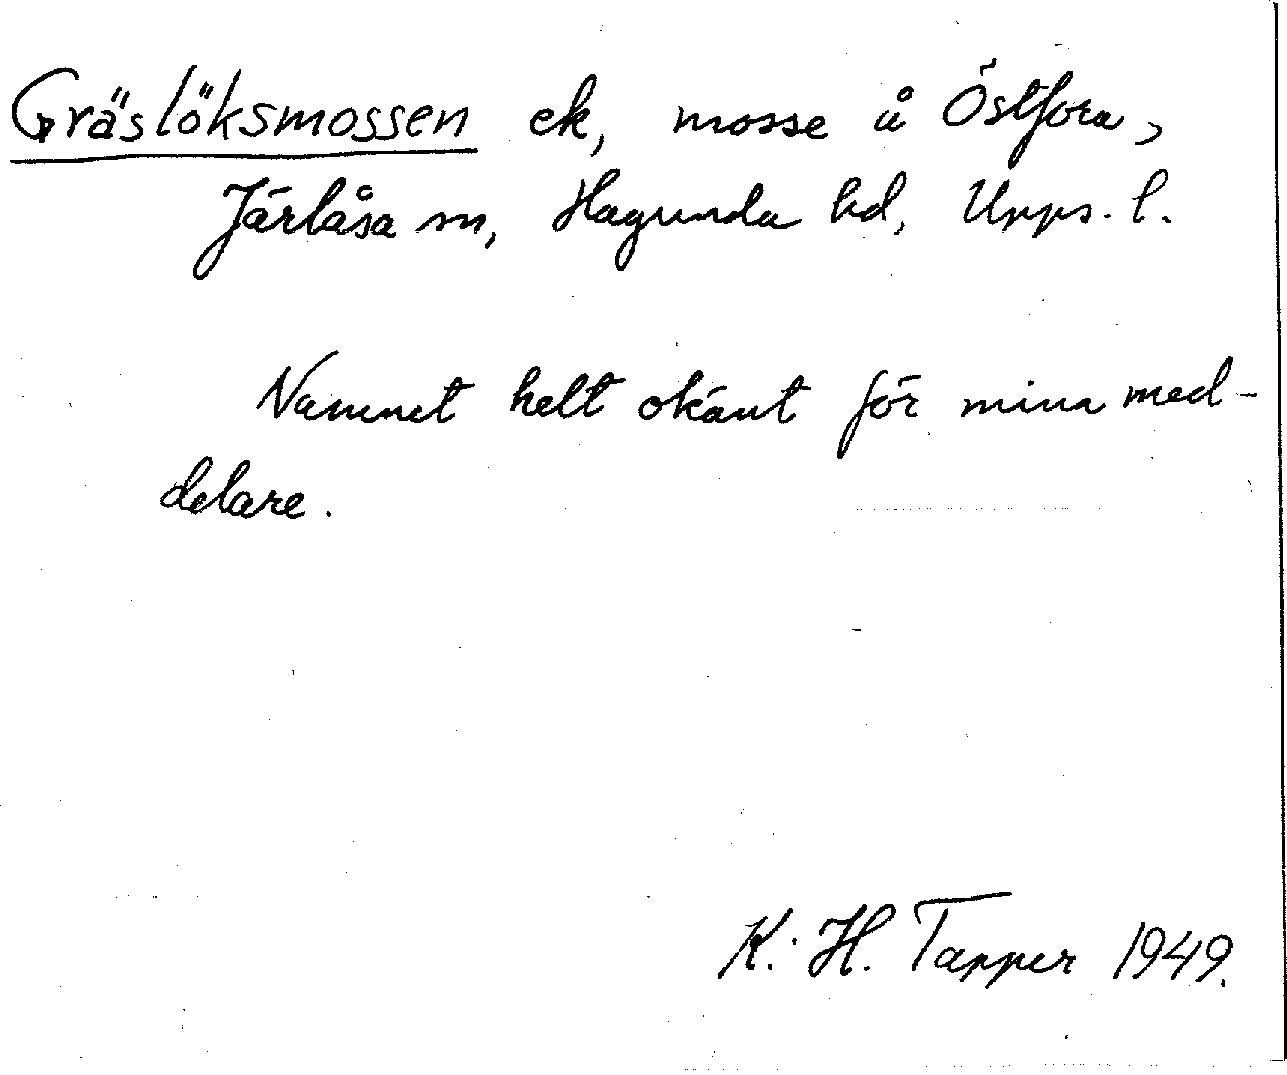 Gräslöksmossen ek, mosse å Östfora,
Järlåsa sn, Hagunda hd, Upps. l.
Namnet helt okänt för mina med-
delare.
K. H. Tapper 1949.